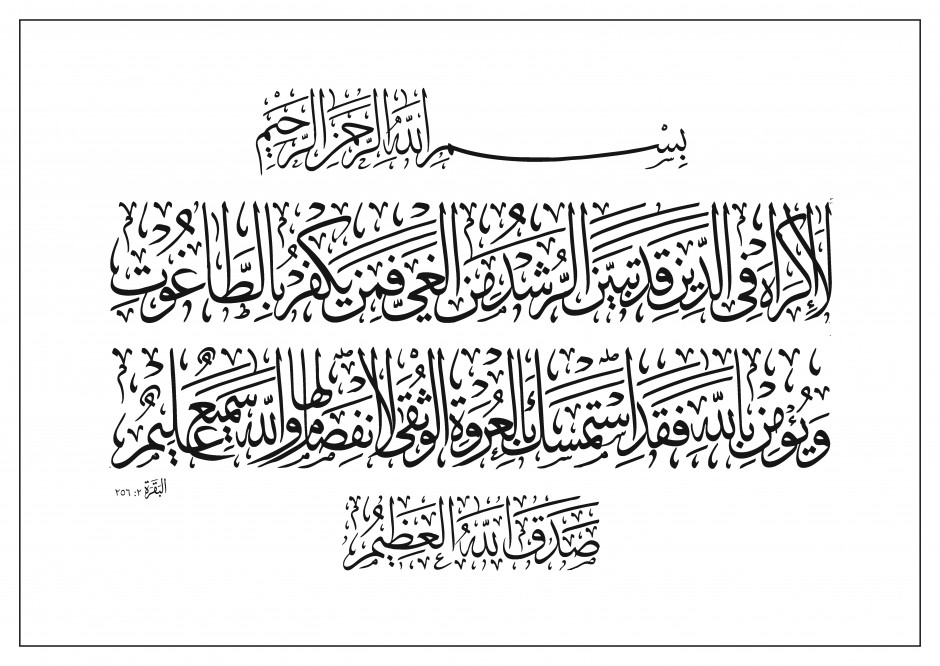 بِسْمِ اللَّهِ الرَّحْمَنِ الرَّحِيمِ
لَا إِكْرَاهَ فِي الدِّينِ قَد تَّبَيَّنَ الرُّشْدُ مِنَ الْغَيِّ فَمَن يَكْفُرْ بِالطَّاغُوتِ
وَيُؤْمِن بِاللَّهِ فَقَدِ اسْتَمْسَكَ بِالْعُرْوَةِ الْوُثْقَى لَا انفِصَامَ لَهَا وَاللَّهُ سَمِيعٌ عَلِيمٌ
البَقَرَة ٢: ٢٥٦
صَدَقَ اللَّهُ الْعَظِيمُ